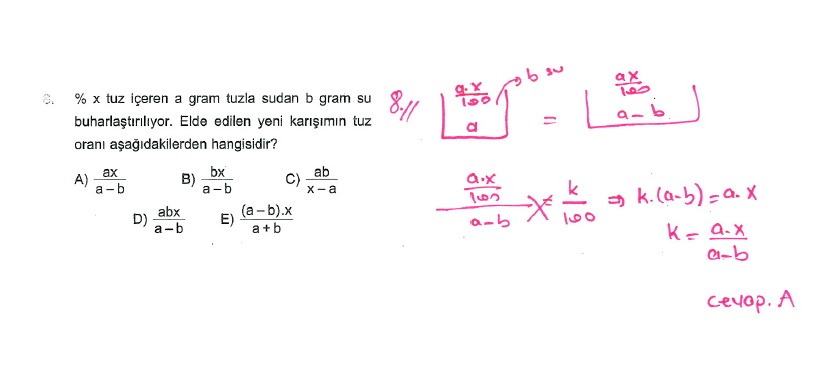 8. % x tuz içeren a gram tuzla sudan b gram su
buharlaştırılıyor. Elde edilen yeni karışımın tuz
oranı aşağıdakilerden hangisidir?
A) ax/(a–b) B) bx/(a–b) C) ab/(x–a)
D) abx/(a–b) E) (a–b).x/(a+b)
8.// a.x/100 b su ax/100
a = a-b
(a.x/100)/(a-b) = k/100 ⇒ k.(a-b) = a.x
k = a.x/(a-b)
cevap. A